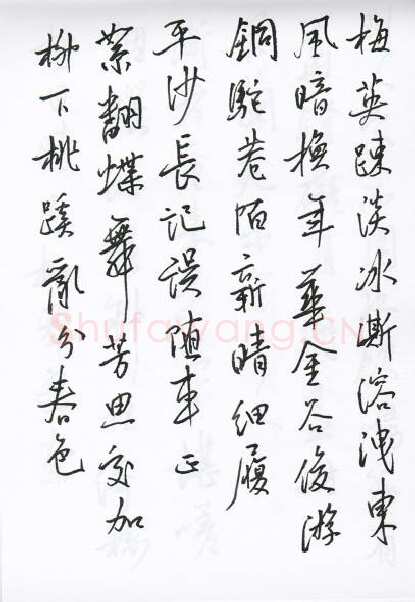 梅英踈淡冰澌溶洩東
風暗換年華金谷俊游
銅駝巷陌新晴細履
平沙長記誤随車正
絮翻蝶舞芳思交加
柳下桃蹊亂分春色
Shufawang.CN